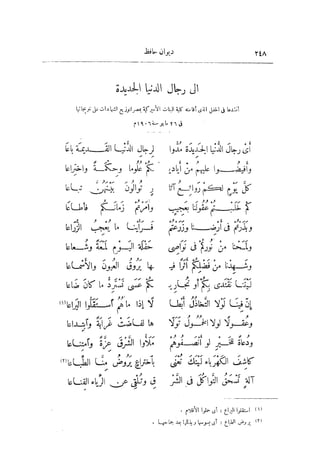 ٢٤٨ ديوان حافظ
الى رجال الدنيا الجديدة
أنشدها فى الحفل الذى أقامته كلية البنات الأمريكية بمصر لتوزيع الشهادات على خريجاتها
فى ٢٦ مايو سنة ١٩٠٦م
أى رجال الدنيا الجديدة مدوا لرجال الدنيا القديمة باعا
وأفيضوا عليهم من أياديكم علوما وحكمة واختراعا
كل يوم لكم روائع آثار توالون بينهن تباعا
كم خلبتم عقولنا بعجيب وأمرتم زمانكم فأطاعا
وبذرتم فى أرضنا وزرعتم فرأينا ما يعجب الزراعا
ولمحنا من نوركم فى نواصى حفلة اليوم لمعة وشعاعا
وشهدنا من فضلكم أثرا فيها يروق العيون والأسماعا
ليتنا نقتدى بكم أو نجاريكم عسى نسترد ما كان ضاعا
إن فينا لولا التخاذل أبطالا إذا ما هم استقلوا اليراعا (١)
وعقولا لولا الخمول تولاها لفاضت غرابة وابتداعا
ودعاة للخير لو أنصفوهم ملأوا الشرق عزة وامتناعا
كاشف الكهرباء ليتك تعنى باختراع يروض منا الطباعا (٢)
آلة تسحق التواكل فى الشرق وتلقى عن الرياء القناعا
(١) استقلوا اليراع : أى حملوا الأقلام .
(٢) يروض الطباع : أى يسوسها ويذللها بعد جماحها .